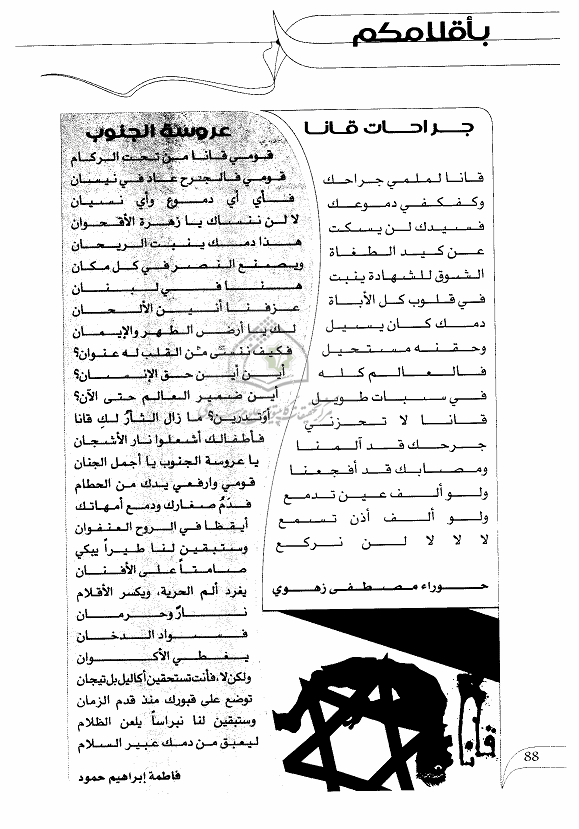 بأقلامكم
جراحات قانا
قانا لملمي جراحك
وكفكفي دموعك
فسيدك لن يسكت
عن كيد الطغاة
الشوق للشهادة ينبت
في قلوب كل الأباة
دمك كان يسيل
وحقنه مستحيل
فالعالم كله
في سبات طويل
قانا لا تحزني
جرحك قد آلمنا
ومصابك قد أفجعنا
ولو ألف عين تدمع
ولو ألف أذن تسمع
لا لا لا لن نركع
حوراء مصطفى زهوي
عروسة الجنوب
قومي قانا من تحت الركام
قومي فالجرح عاد في نيسان
فأي أي دموع وأي نسيان
لا لن ننساك يا زهرة الأقحوان
هذا دمك ينبت الريحان
ويصنع النصر في كل مكان
هنا في لبنان
عزفنا أنين الألحان
لك يا أرض الطهر والإيمان
فكيف ننسى من القلب له عنوان؟
أين أين حق الإنسان؟
أين ضمير العالم حتى الآن؟
أوتدرين؟ ما زال الثأر لكِ قانا
فأطفالك أشعلوا نار الأشجان
يا عروسة الجنوب يا أجمل الجنان
قومي وارفعي يدك من الحطام
فدم صغارك ودمع أمهاتك
أيقظا في الروح العنفوان
وستبقين لنا طيراً يبكي
صامتاً على الأفنان
يغرد ألم الحرية، ويكسر الأقلام
نار وحرمان
فسواد الدخان
يغطي الأكوان
ولكن لا، فأنت تستحقين أكاليل بل تيجان
توضع على قبورك منذ قدم الزمان
وستبقين لنا نبراساً يلعن الظلام
ليعبق من دمك عبير السلام
فاطمة إبراهيم حمود
قانا
88